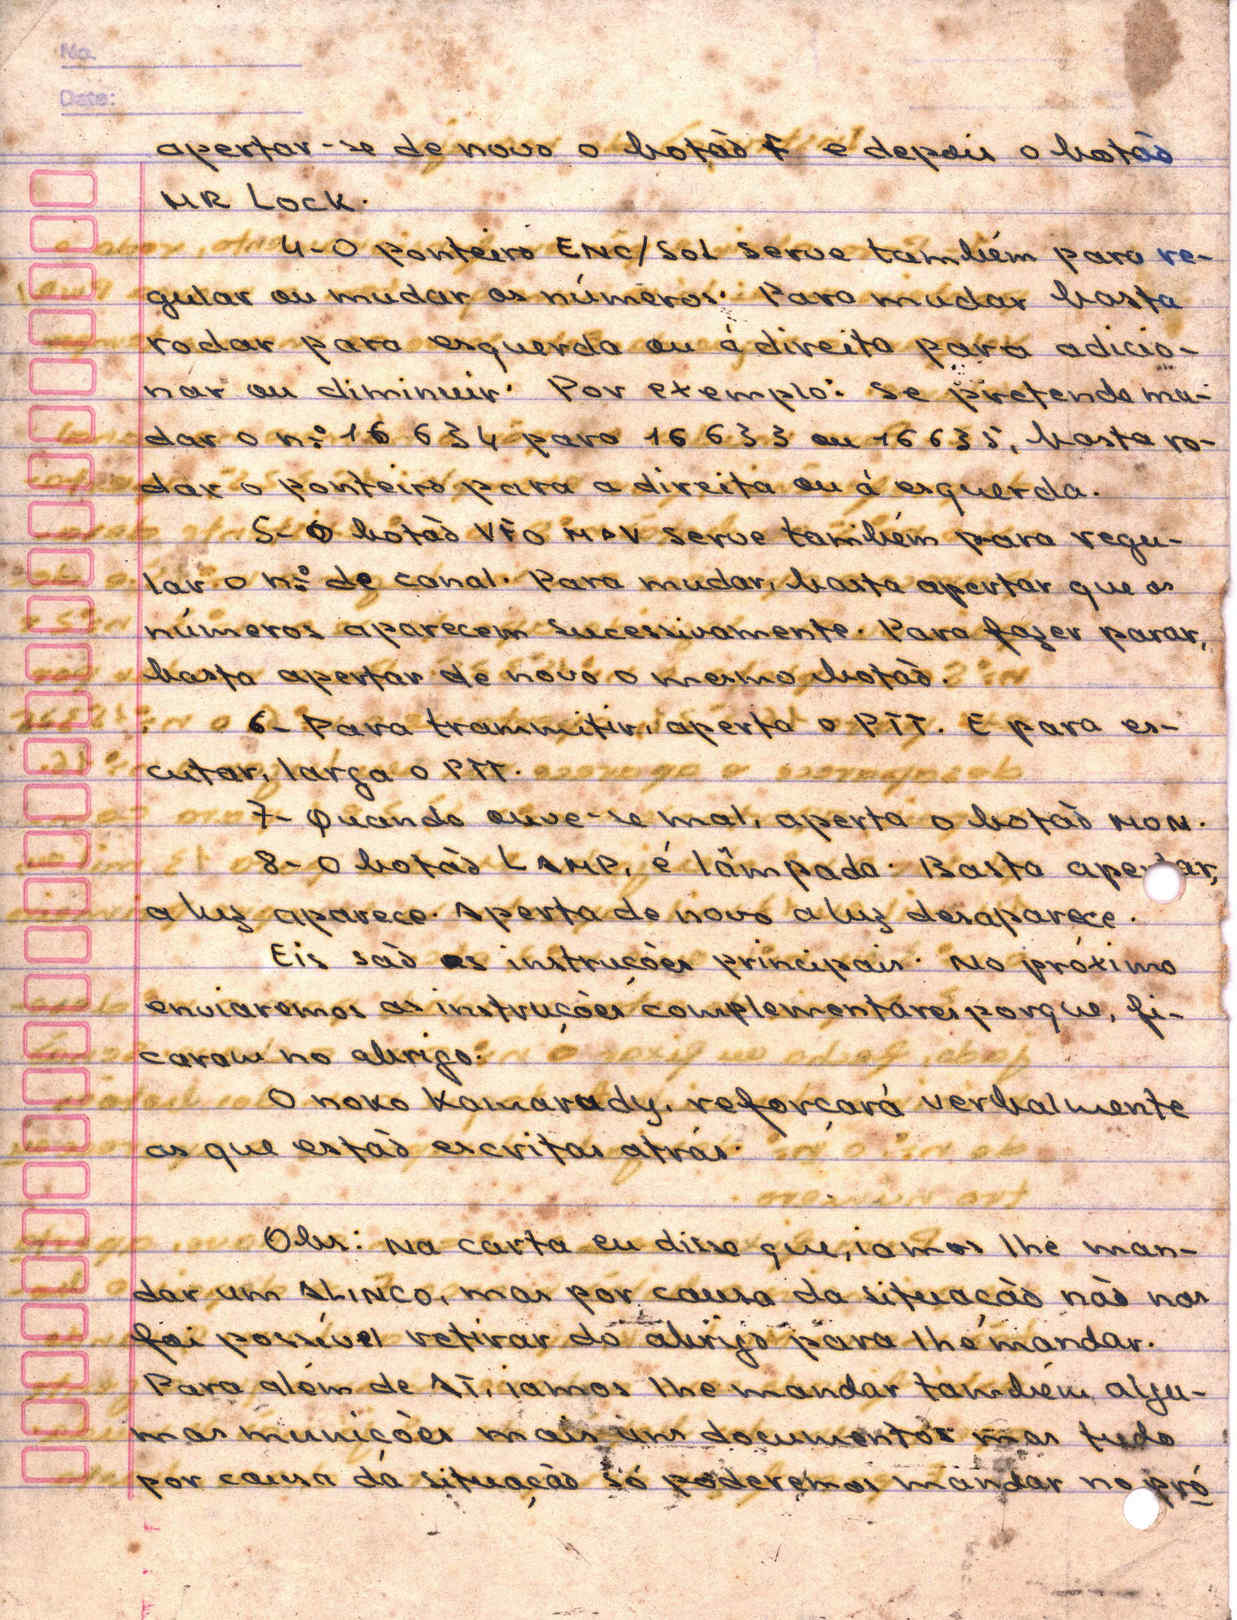 No.
Date:
apertar-se de novo o botão F e depois o botão
MR LOCK.
4-O ponteiro ENC/SOL serve também para re-
gular ou mudar os números. Para mudar basta
rodar para esquerda ou á direita para adicio-
nar ou diminuir. Por exemplo: Se pretende mu-
dar o n.º 16 634 para 16 633 ou 16635, basta ro-
dar o ponteiro para a direita ou á esquerda.
5- O botão VFO serve também para regu-
lar o n.º de canal. Para mudar, basta apertar que os
números aparecem sucessivamente. Para fazer parar,
basta apertar de novo o mesmo botão.
6- Para transmitir, aperta o PTT. E para es-
cutar, larga o PTT.
7- Quando ouve-se mal, aperta o botão MON.
8- O botão LAMP, é lâmpada. Basta apertar,
a luz aparece. Aperta de novo a luz desaparece.
Eis são as instruções principais. No próximo
enviaremos as instruções complementares porque, fi-
caram no abrigo.
O novo Kamarady, reforçará verbalmente
as que estão escritas atrás.
Obs: Na carta eu disse que, iamos lhe man-
dar um ALINCO, mas por causa da situação não nos
foi possível retirar do abrigo para lhe mandar.
Para além de SI, iamos lhe mandar também algu-
mas munições mais uns documentos mas tudo
por causa da situação só poderemos mandar no pró